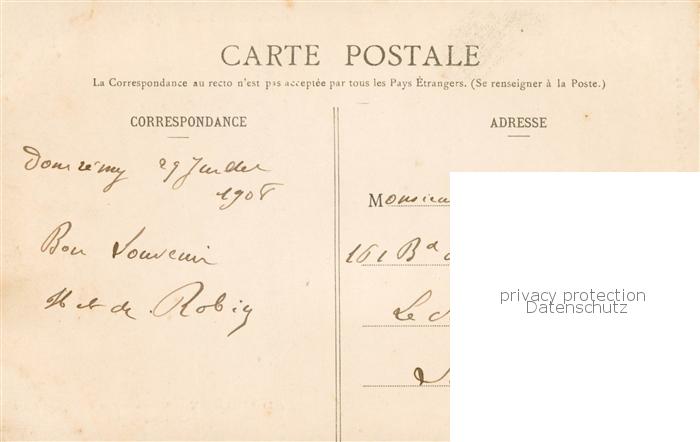 CARTE POSTALE
La Correspondance au recto n'est pas acceptée par tous les Pays Étrangers. (Se renseigner à la Poste.)
CORRESPONDANCE
ADRESSE
Domrémy 29 Juillet
1908
Bon Souvenir
H et de Robig
Monsieur
161 Bd
Le
privacy protection
Datenschutz